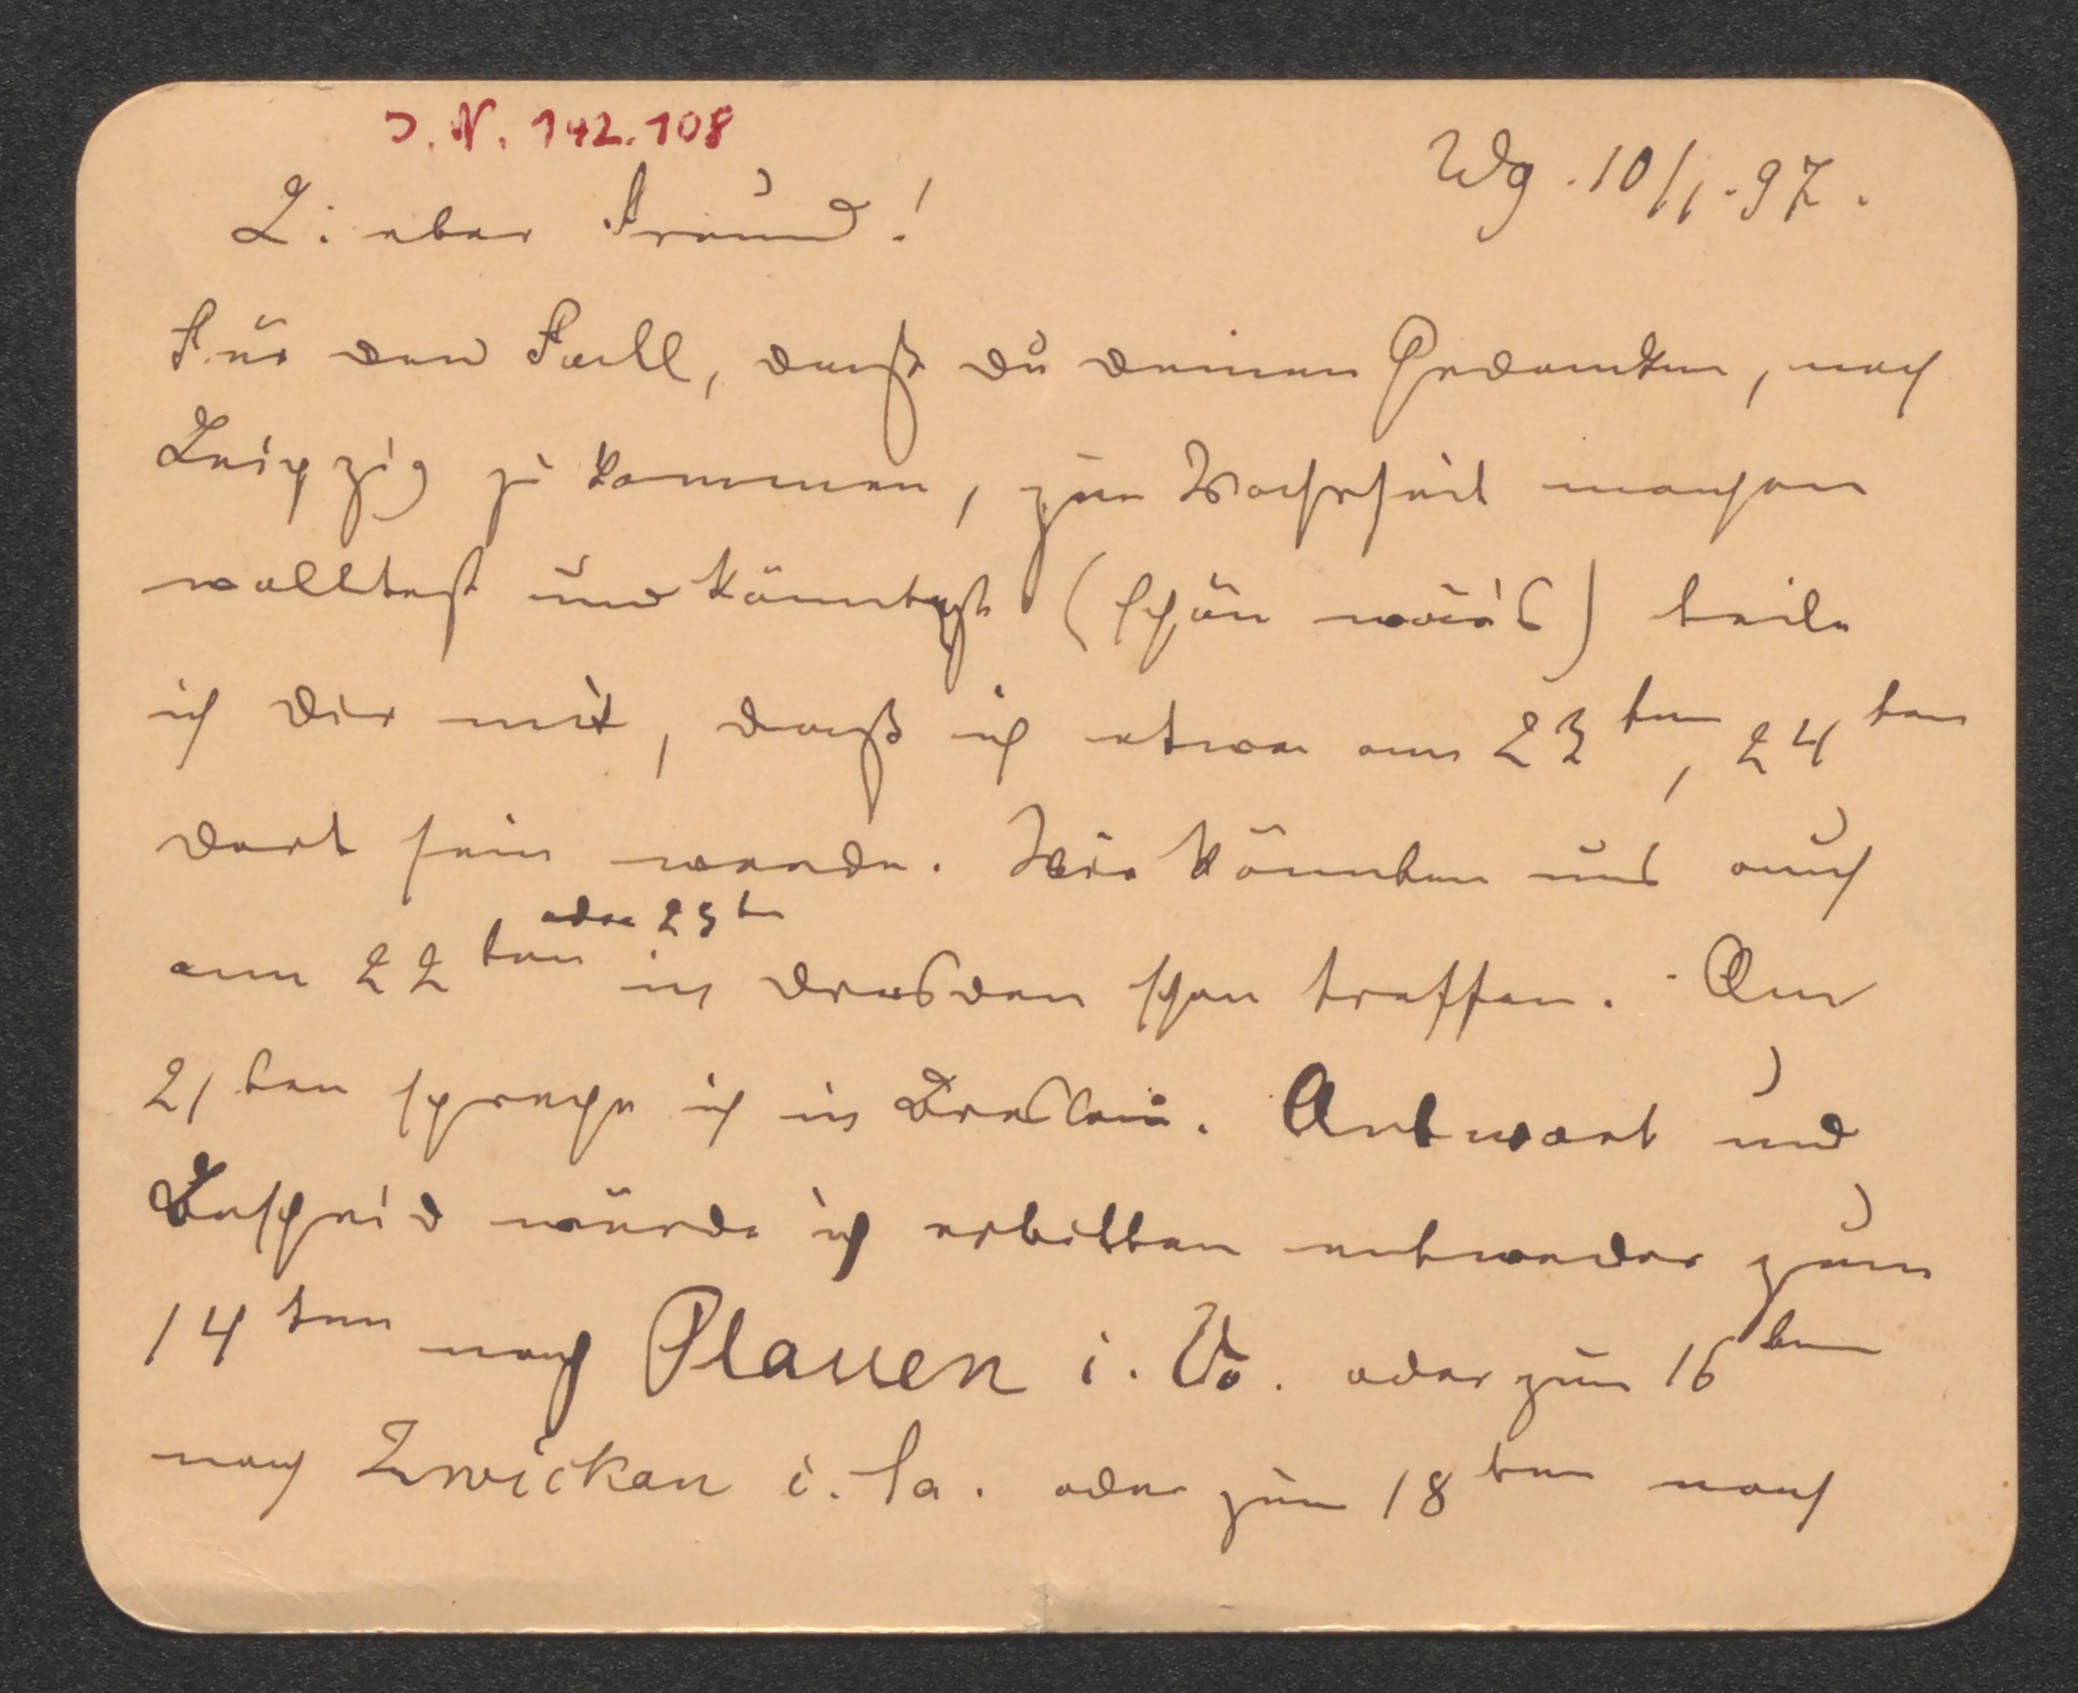 J. N. 142.108
Wg. 10/1.97.
Lieber Freund!
Für den Fall, daß du deinen Gedanken, nach
Leipzig zu kommen, zur Wahrheit machen
wolltest und könntest (schön wär's) teile
ich dir mit, daß ich etwa am 23ten, 24ten
dort sein werde. Wir könnten uns auch
oder 23t
am 22ten in Dresden schon treffen. Am
21ten spreche ich in Breslau. Antwort und
Bescheid würde ich erbitten entweder zum
14ten nach Plauen i. Vo. oder zum 16ten
nach Zwickau i. Sa. oder zum 18ten nach